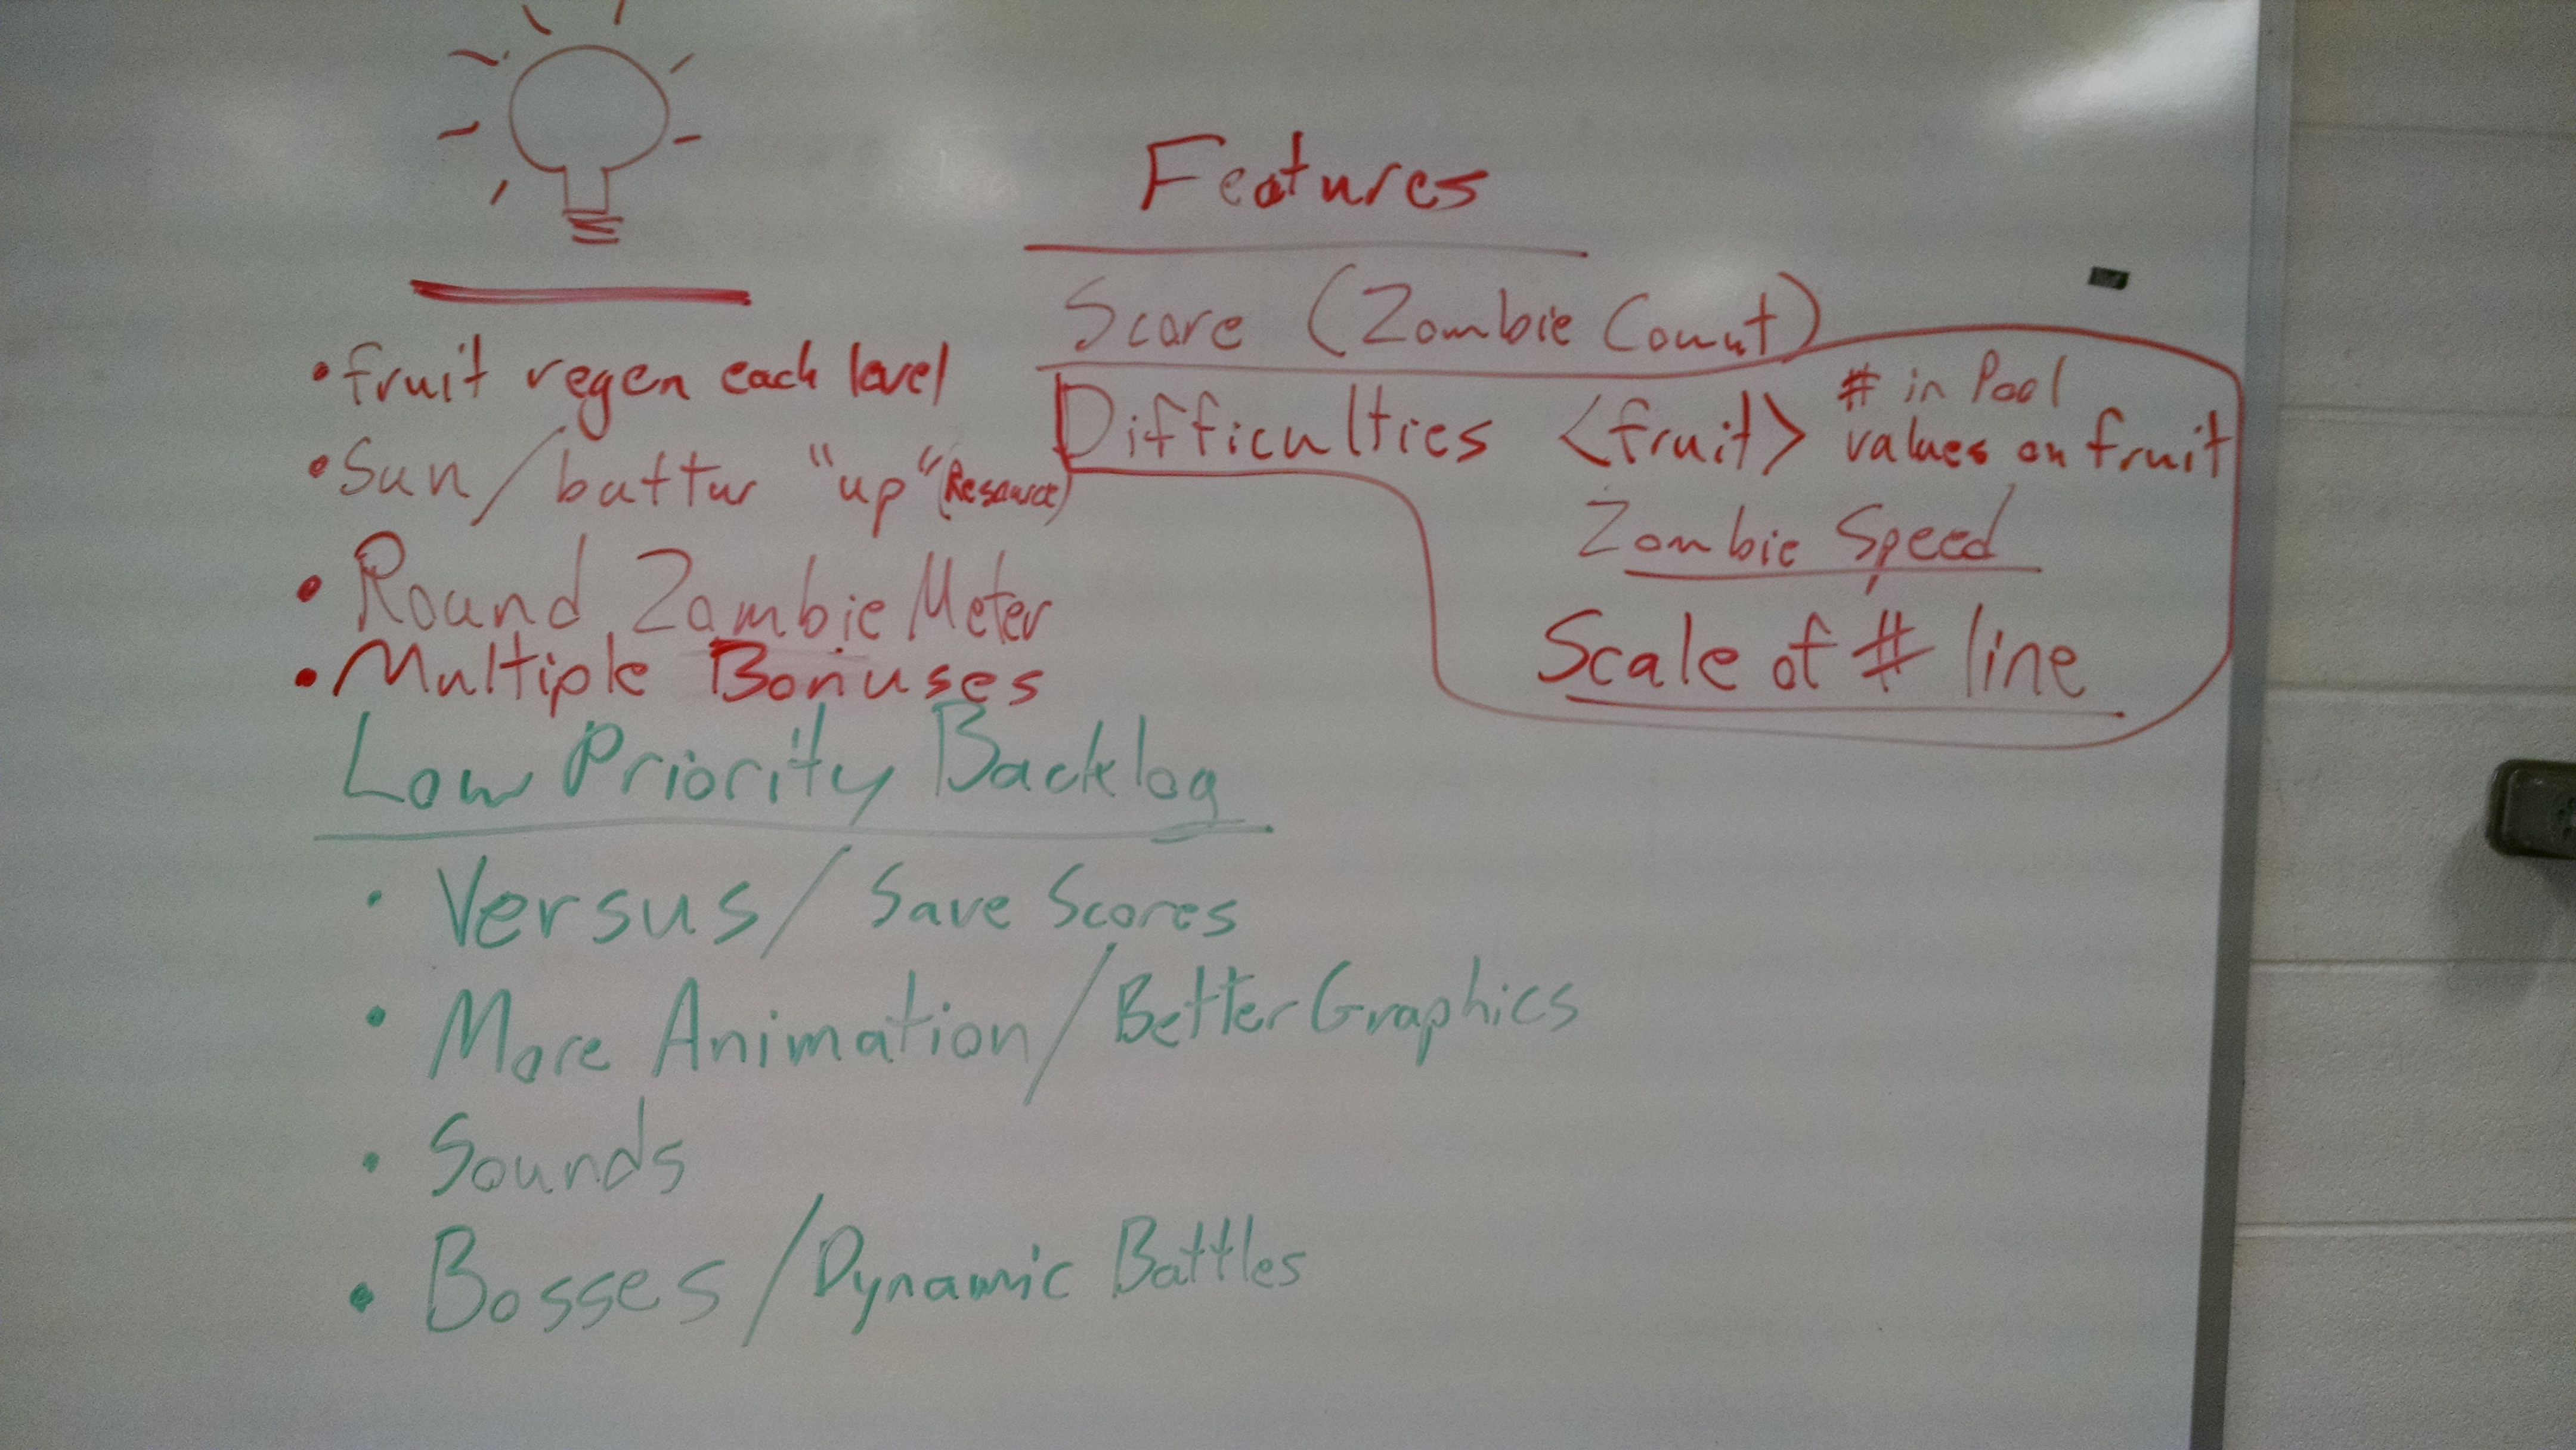 • fruit regen each level
• Sun/battur "up" (Resource)
• Round Zombie Meter
• Multiple Bonuses
Features
Score (Zombie Count)
Difficulties <fruit> # in Pool
values on fruit
Zombie Speed
Scale of # line
Low Priority Backlog
• Versus/Save Scores
• More Animation/Better Graphics
• Sounds
• Bosses/Dynamic Battles